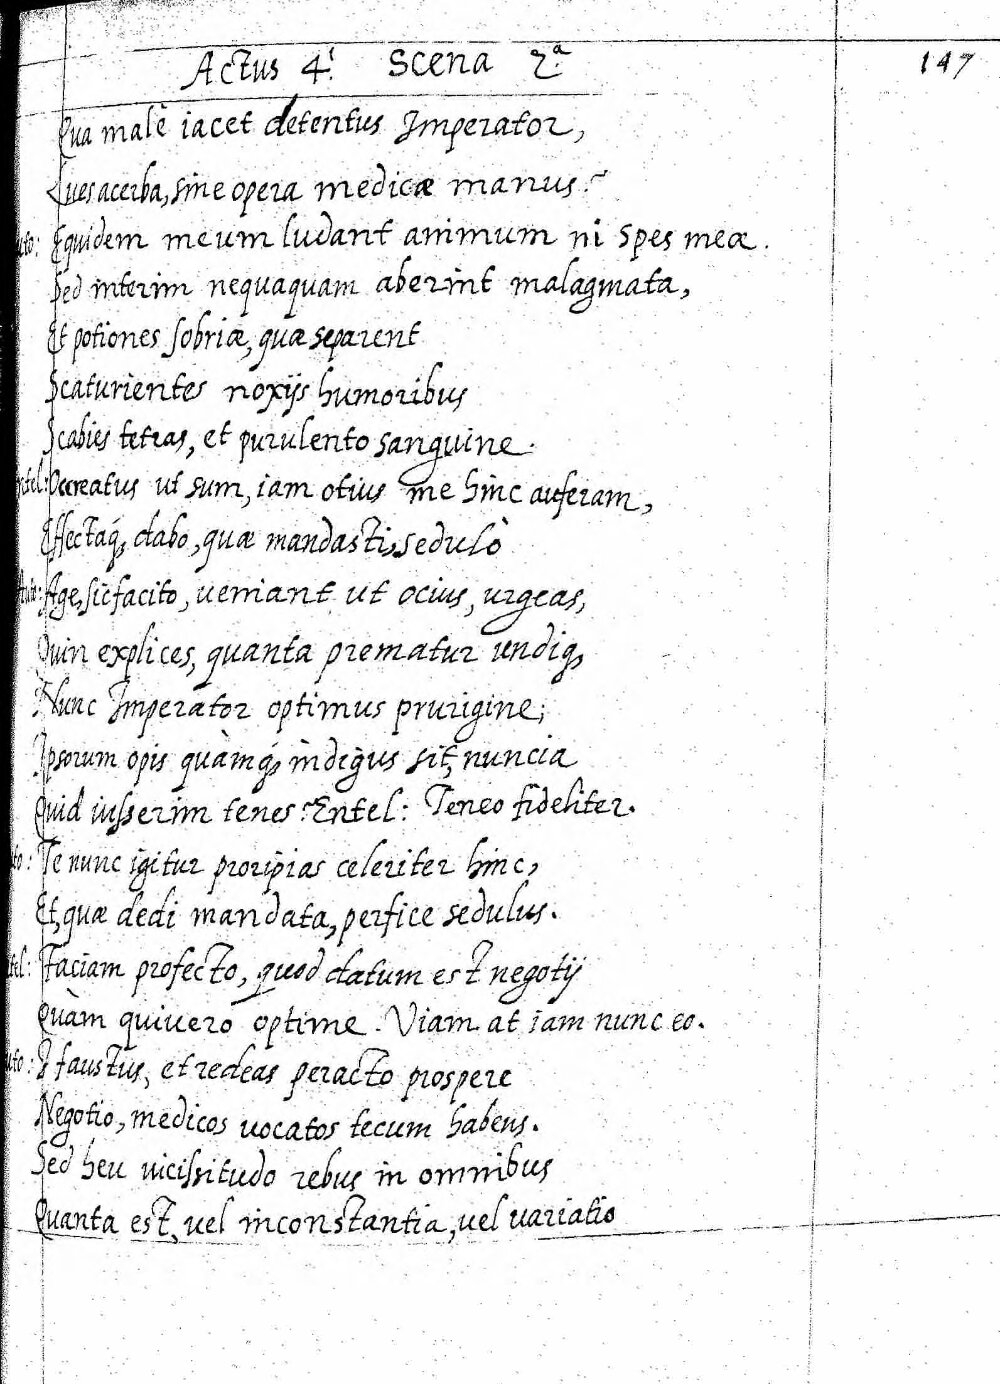 Actus 4.i Scena 2.a
147
Qua malè iacet detentus Imperator,
Lues acerba, sine opera medicæ manus?
Equidem meum ludant animum ni spes meæ.
Sed interim nequaquam aberint malagmata,
Et potiones sobriæ, quæ separent
Scaturientes noxijs humoribus
Scabies tetras, et purulento sanguine.
Ocreatus ut sum, iam otius me hinc auferam,
Effectaq, dabo, quæ mandasti, sedulò
Age, sic facito, veniant ut ocius, urgeas,
Quin explices, quanta prematur undiq,
Nunc Imperator optimus prurigine;
Ipsorum opis quàmq, indigus sit, nuncia
Quid iusserim tenes? Entel: Teneo fideliter.
Te nunc igitur proripias celeriter hinc,
Et, quæ dedi mandata, perfice sedulus.
Faciam profecto, quod datum est negotij
Quàm quivero optime. Viam at iam nunc eo.
I faustus, et redeas peracto prospere
Negotio, medicos uocatos tecum habens.
Sed heu uicissitudo rebus in omnibus
Quanta est, uel inconstantia, uel uariatio